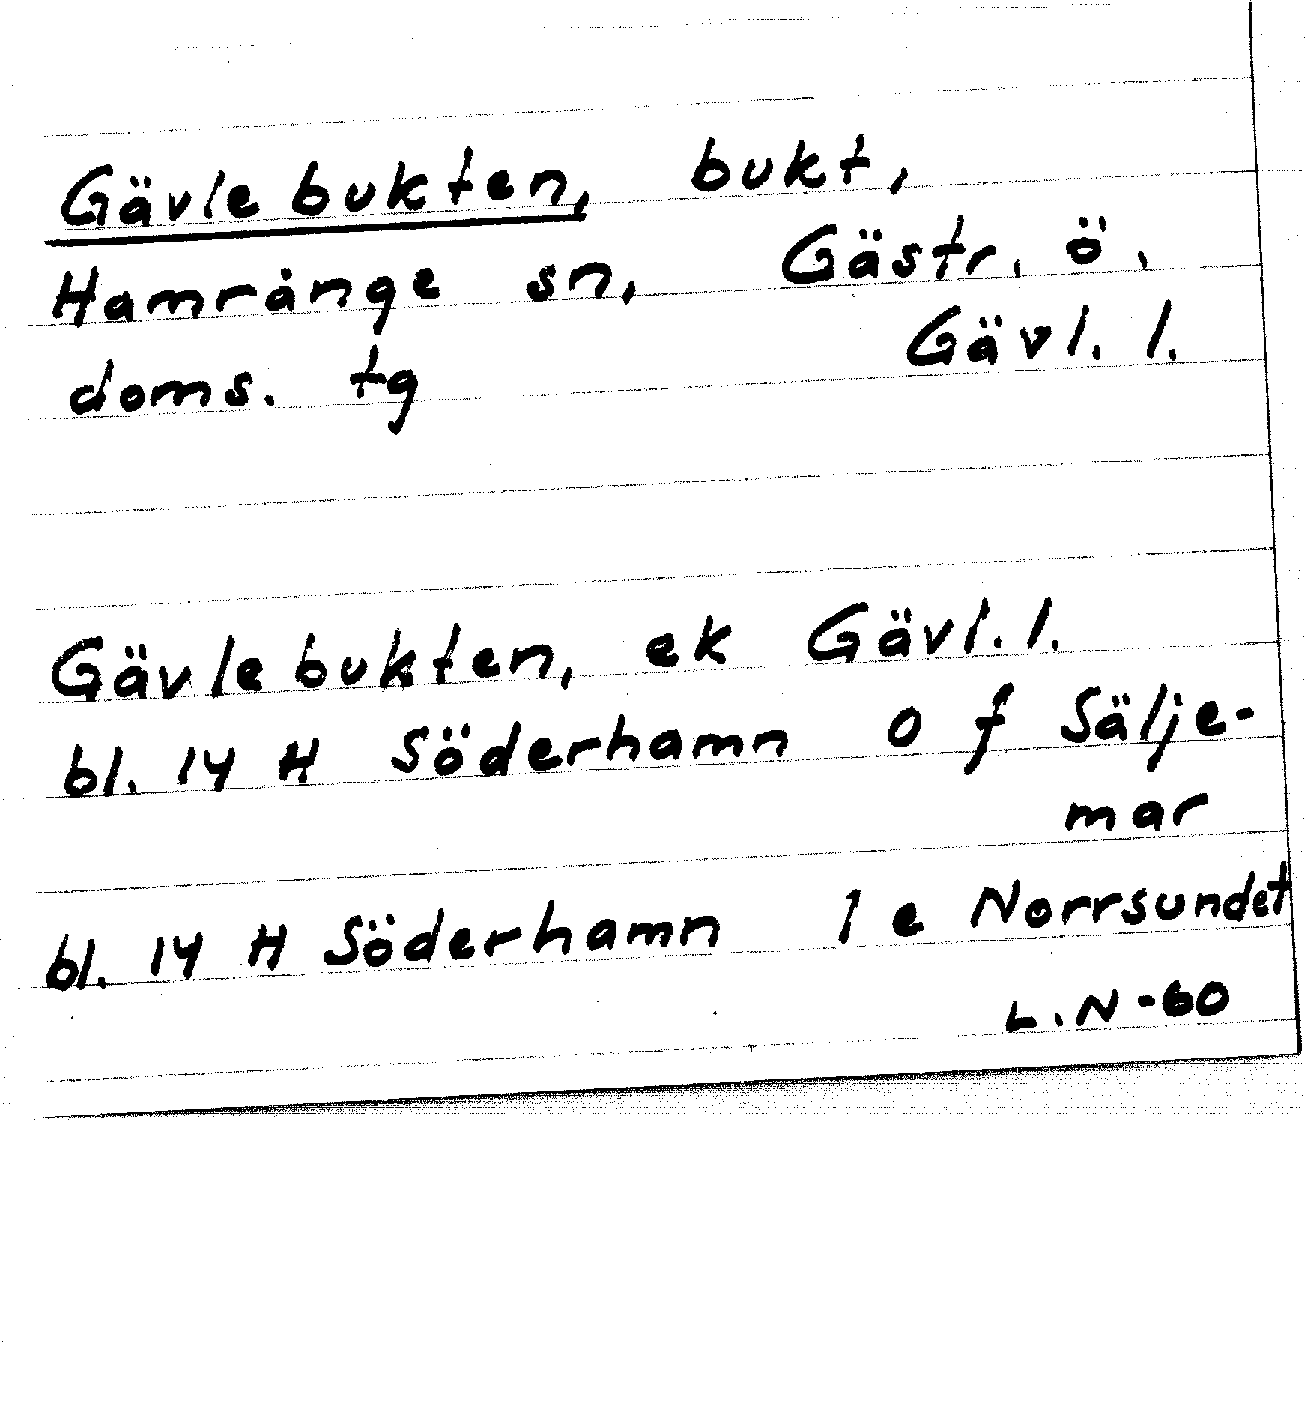 Gävlebukten, bukt,
Hamrånge sn, Gästr. ö.
doms. tg Gävl. l.
Gävlebukten, ek Gävl. l.
bl. 14 H Söderhamn 0 f Sälje-
mar
bl. 14 H Söderhamn 1 e Norrsundet
L. N -60